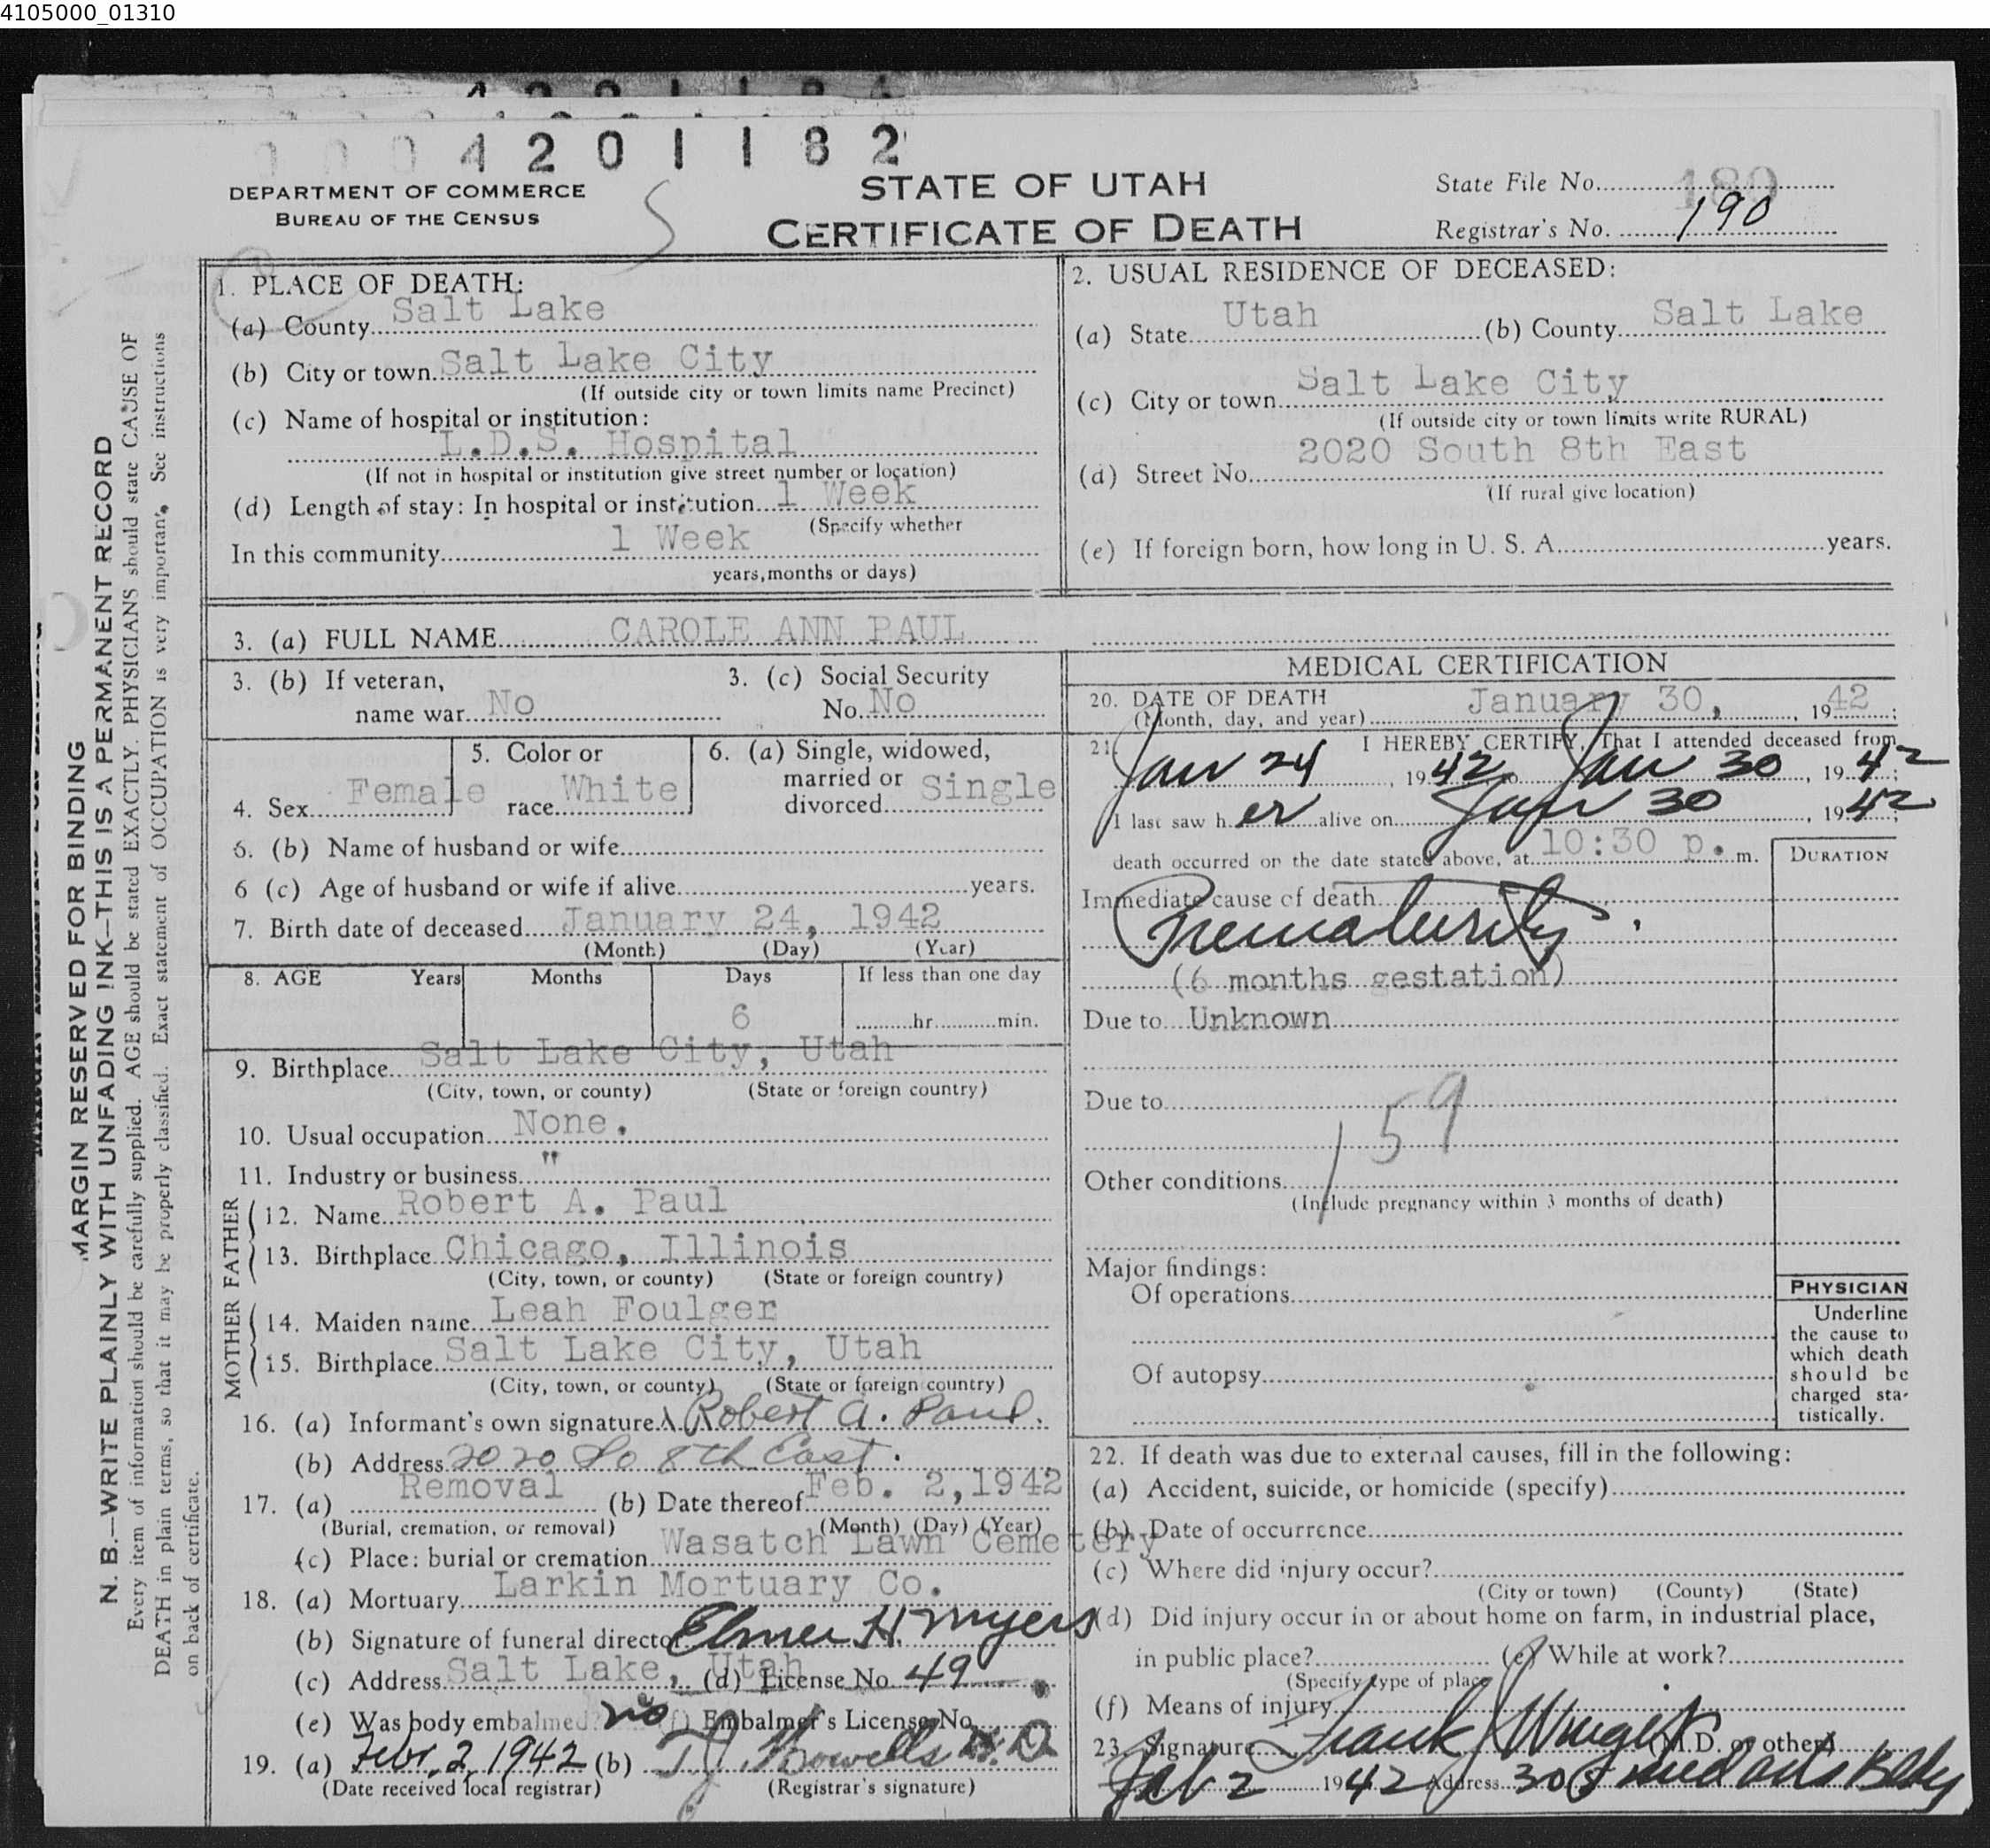 4105000_01310
0004201182
DEPARTMENT OF COMMERCE
BUREAU OF THE CENSUS
STATE OF UTAH
CERTIFICATE OF DEATH
State File No. 180
Registrar's No. 190
MARGIN RESERVED FOR BINDING
N. B.—WRITE PLAINLY WITH UNFADING INK—THIS IS A PERMANENT RECORD
Every item of information should be carefully supplied. AGE should be stated EXACTLY. PHYSICIANS should state CAUSE OF
DEATH in plain terms, so that it may be properly classified. Exact statement of OCCUPATION is very important. See instructions
on back of certificate.
1. PLACE OF DEATH:
(a) County Salt Lake
(b) City or town Salt Lake City
(If outside city or town limits name Precinct)
(c) Name of hospital or institution:
L.D.S. Hospital
(If not in hospital or institution give street number or location)
(d) Length of stay: In hospital or institution 1 Week
(Specify whether
In this community 1 Week
years, months or days)
2. USUAL RESIDENCE OF DECEASED:
(a) State Utah (b) County Salt Lake
(c) City or town Salt Lake City
(If outside city or town limits write RURAL)
(d) Street No. 2020 South 8th East
(If rural give location)
(e) If foreign born, how long in U. S. A. years.
3. (a) FULL NAME CAROLE ANN PAUL
3. (b) If veteran, name war No
3. (c) Social Security No. No
4. Sex Female
5. Color or race White
6. (a) Single, widowed, married or divorced Single
6. (b) Name of husband or wife
6 (c) Age of husband or wife if alive years.
7. Birth date of deceased January 24, 1942
(Month) (Day) (Year)
8. AGE Years Months Days If less than one day
6 hr. min.
9. Birthplace Salt Lake City, Utah
(City, town, or county) (State or foreign country)
10. Usual occupation None.
11. Industry or business "
FATHER
12. Name Robert A. Paul
13. Birthplace Chicago, Illinois
(City, town, or county) (State or foreign country)
MOTHER
14. Maiden name Leah Foulger
15. Birthplace Salt Lake City, Utah
(City, town, or county) (State or foreign country)
16. (a) Informant's own signature Robert A. Paul.
(b) Address 2020 So 8th East.
17. (a) Removal (b) Date thereof Feb. 2, 1942
(Burial, cremation, or removal) (Month) (Day) (Year)
(c) Place: burial or cremation Wasatch Lawn Cemetery
18. (a) Mortuary Larkin Mortuary Co.
(b) Signature of funeral director Elmer H. Myers
(c) Address Salt Lake, Utah (d) License No. 49
(e) Was body embalmed? no (f) Embalmer's License No.
19. (a) Febr. 2, 1942 (b) T J Howells M.D.
(Date received local registrar) (Registrar's signature)
MEDICAL CERTIFICATION
20. DATE OF DEATH
(Month, day, and year) January 30, 1942;
21. I HEREBY CERTIFY, That I attended deceased from
Jan 24, 1942, to Jan 30, 1942;
I last saw her alive on Jan 30, 1942;
death occurred on the date stated above, at 10:30 p. m.
DURATION
Immediate cause of death
Prematurity.
(6 months gestation)
Due to Unknown
Due to
159
Other conditions
(Include pregnancy within 3 months of death)
Major findings:
Of operations
Of autopsy
PHYSICIAN
Underline
the cause to
which death
should be
charged sta-
tistically.
22. If death was due to external causes, fill in the following:
(a) Accident, suicide, or homicide (specify)
(b) Date of occurrence
(c) Where did injury occur?
(City or town) (County) (State)
(d) Did injury occur in or about home on farm, in industrial place,
in public place? (e) While at work?
(Specify type of place)
(f) Means of injury
23. Signature Frank (M.D. or other)
Feb 2 1942 Address 305 Med Arts Bldg